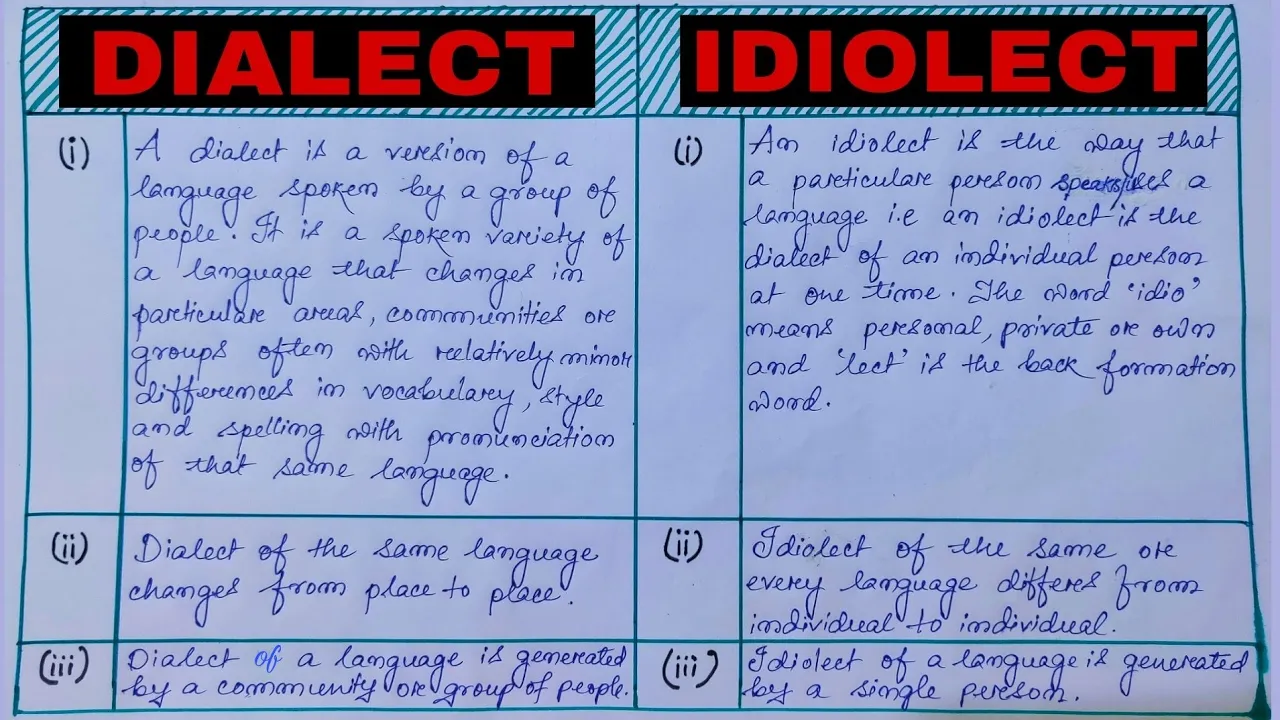 DIALECT
IDIOLECT
(i)
A dialect is a version of a
language spoken by a group of
people. It is a spoken variety of
a language that changes in
particular areas, communities or
groups often with relatively minor
differences in vocabulary, style
and spelling with pronunciation
of that same language.
(i)
An idiolect is the way that
a particular person speaks/uses a
language i.e an idiolect is the
dialect of an individual person
at one time. The word 'idio'
means personal, private or own
and 'lect' is the back formation
word.
(ii)
Dialect of the same language
changes from place to place.
(ii)
Idiolect of the same or
every language differs from
individual to individual.
(iii)
Dialect of a language is generated
by a community or group of people.
(iii)
Idiolect of a language is generated
by a single person.